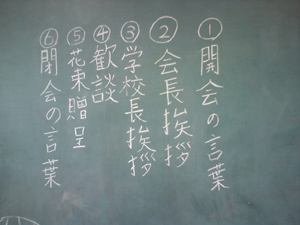 ①開会の言葉
②会長挨拶
③学校長挨拶
④歓談
⑤花束贈呈
⑥閉会の言葉